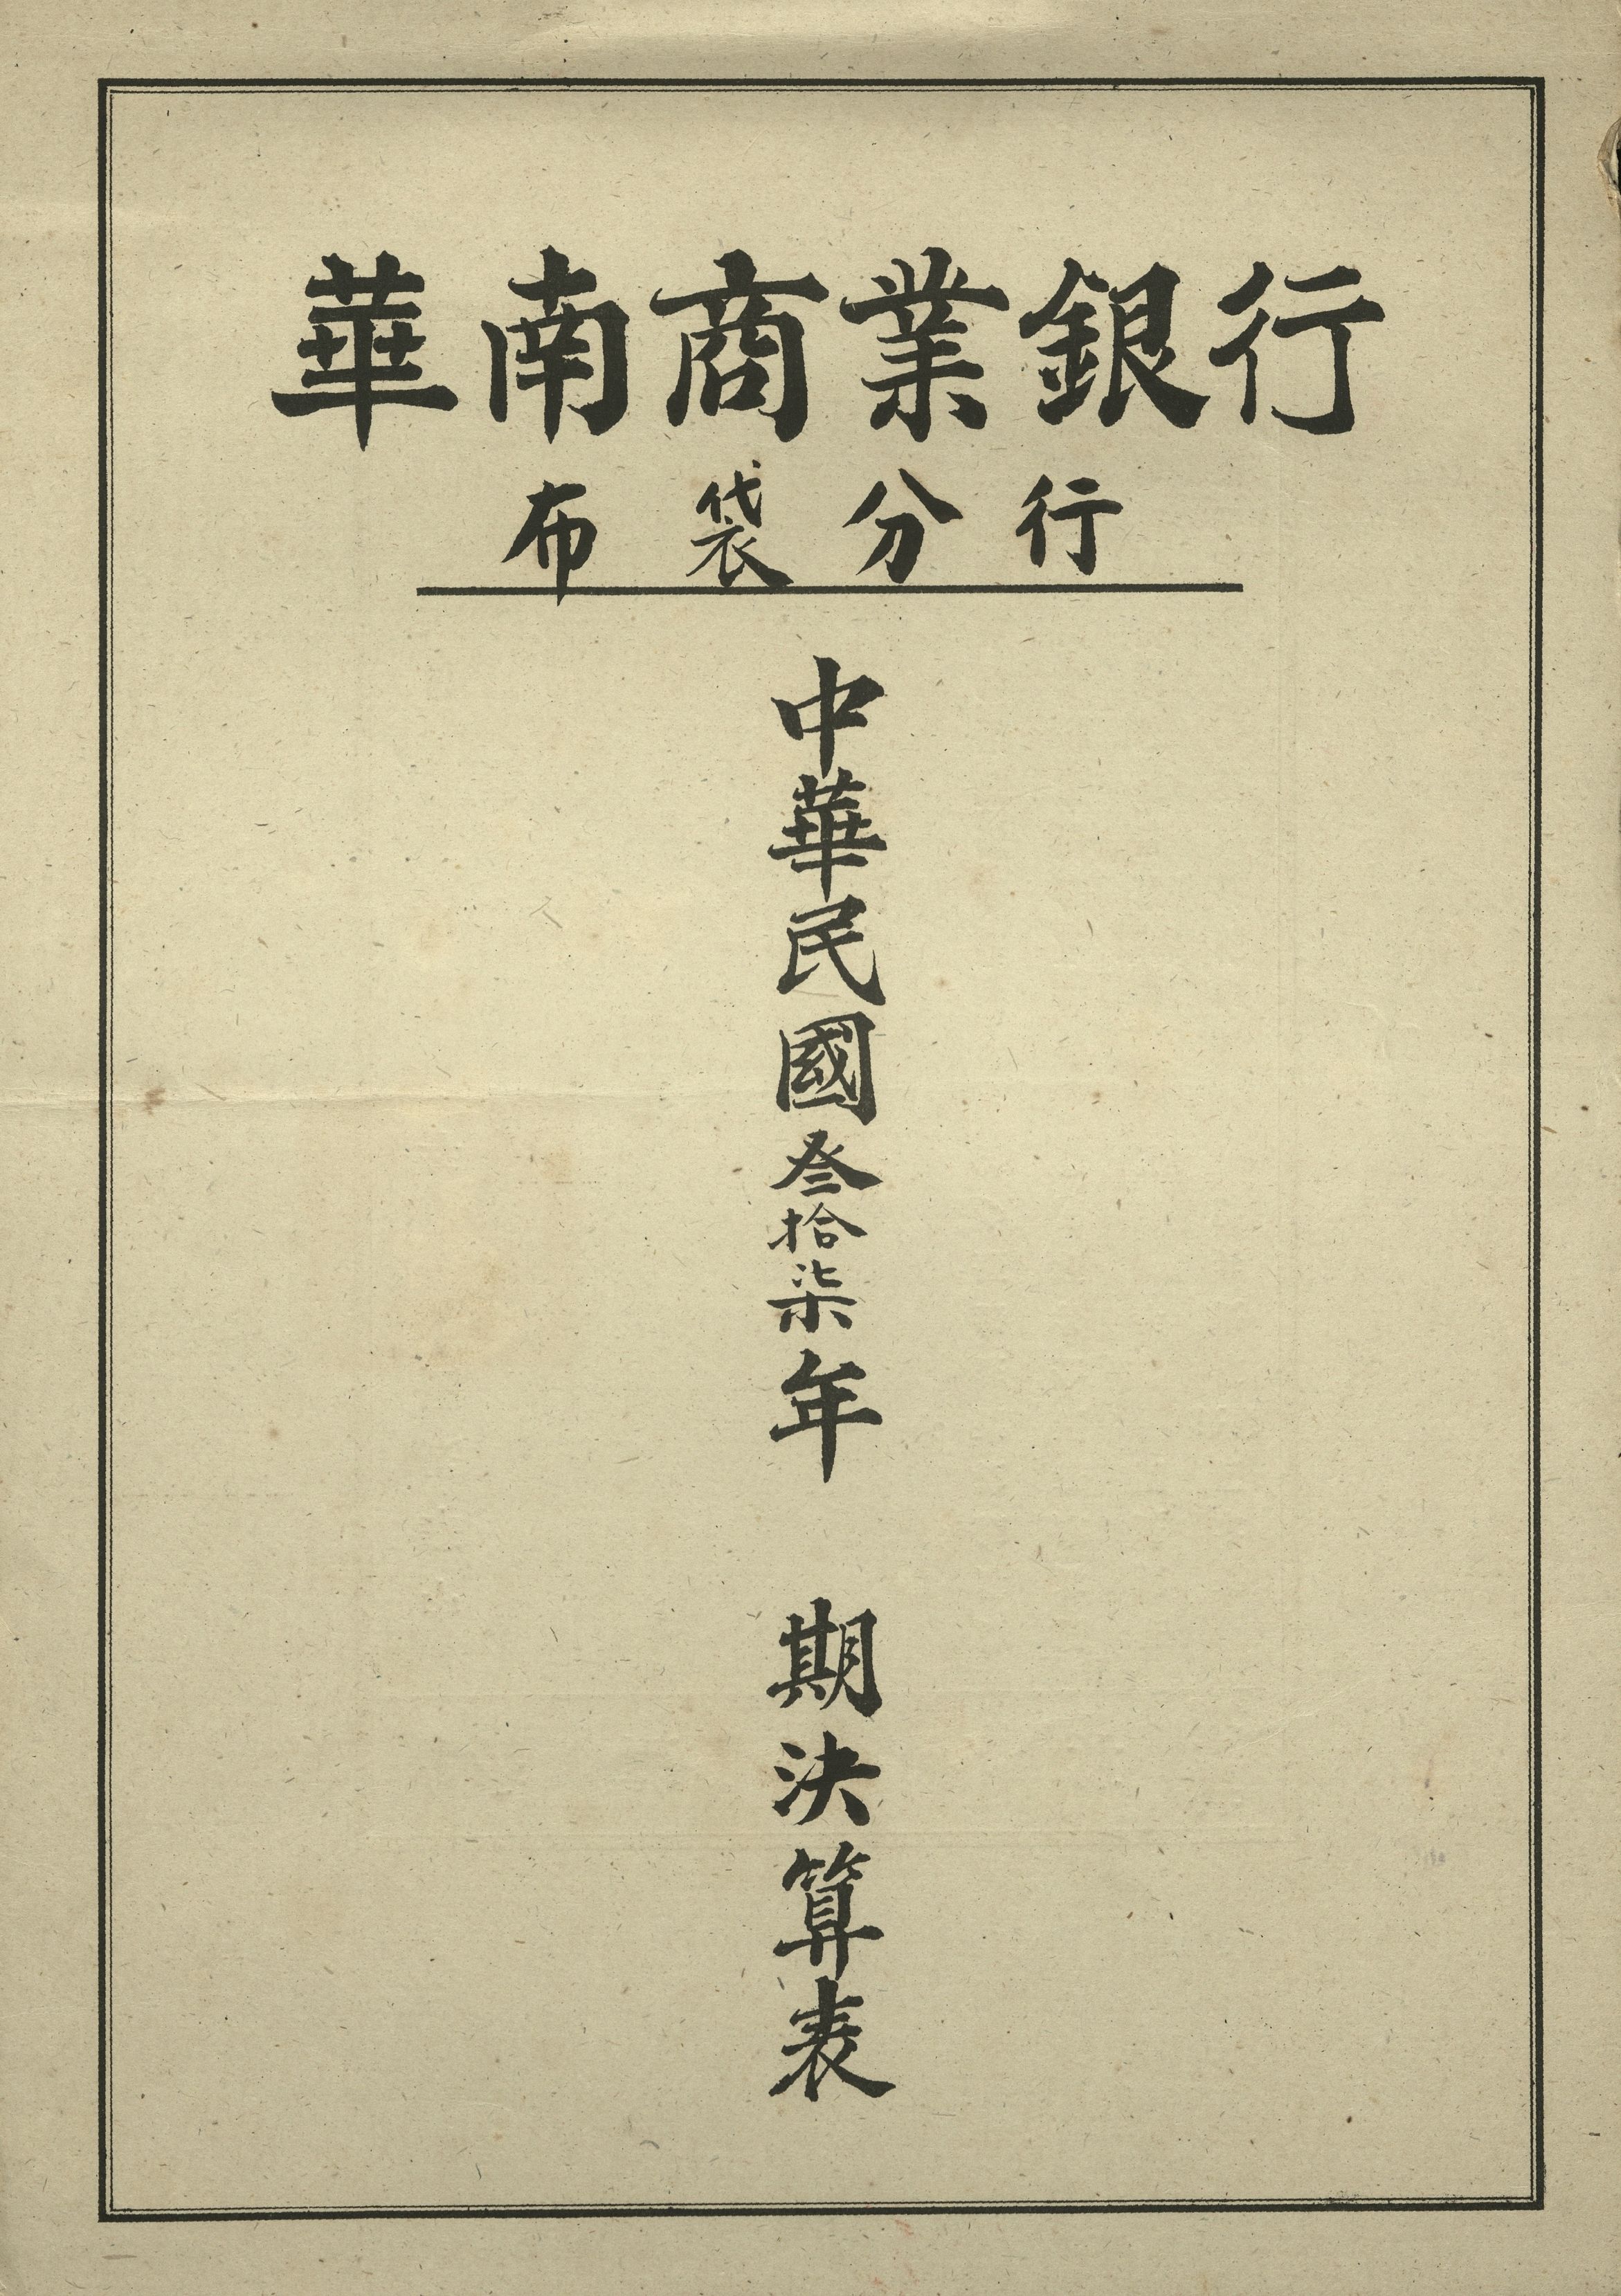 華南商業銀行
布袋分行
中華民國叁拾柒年 期決算表